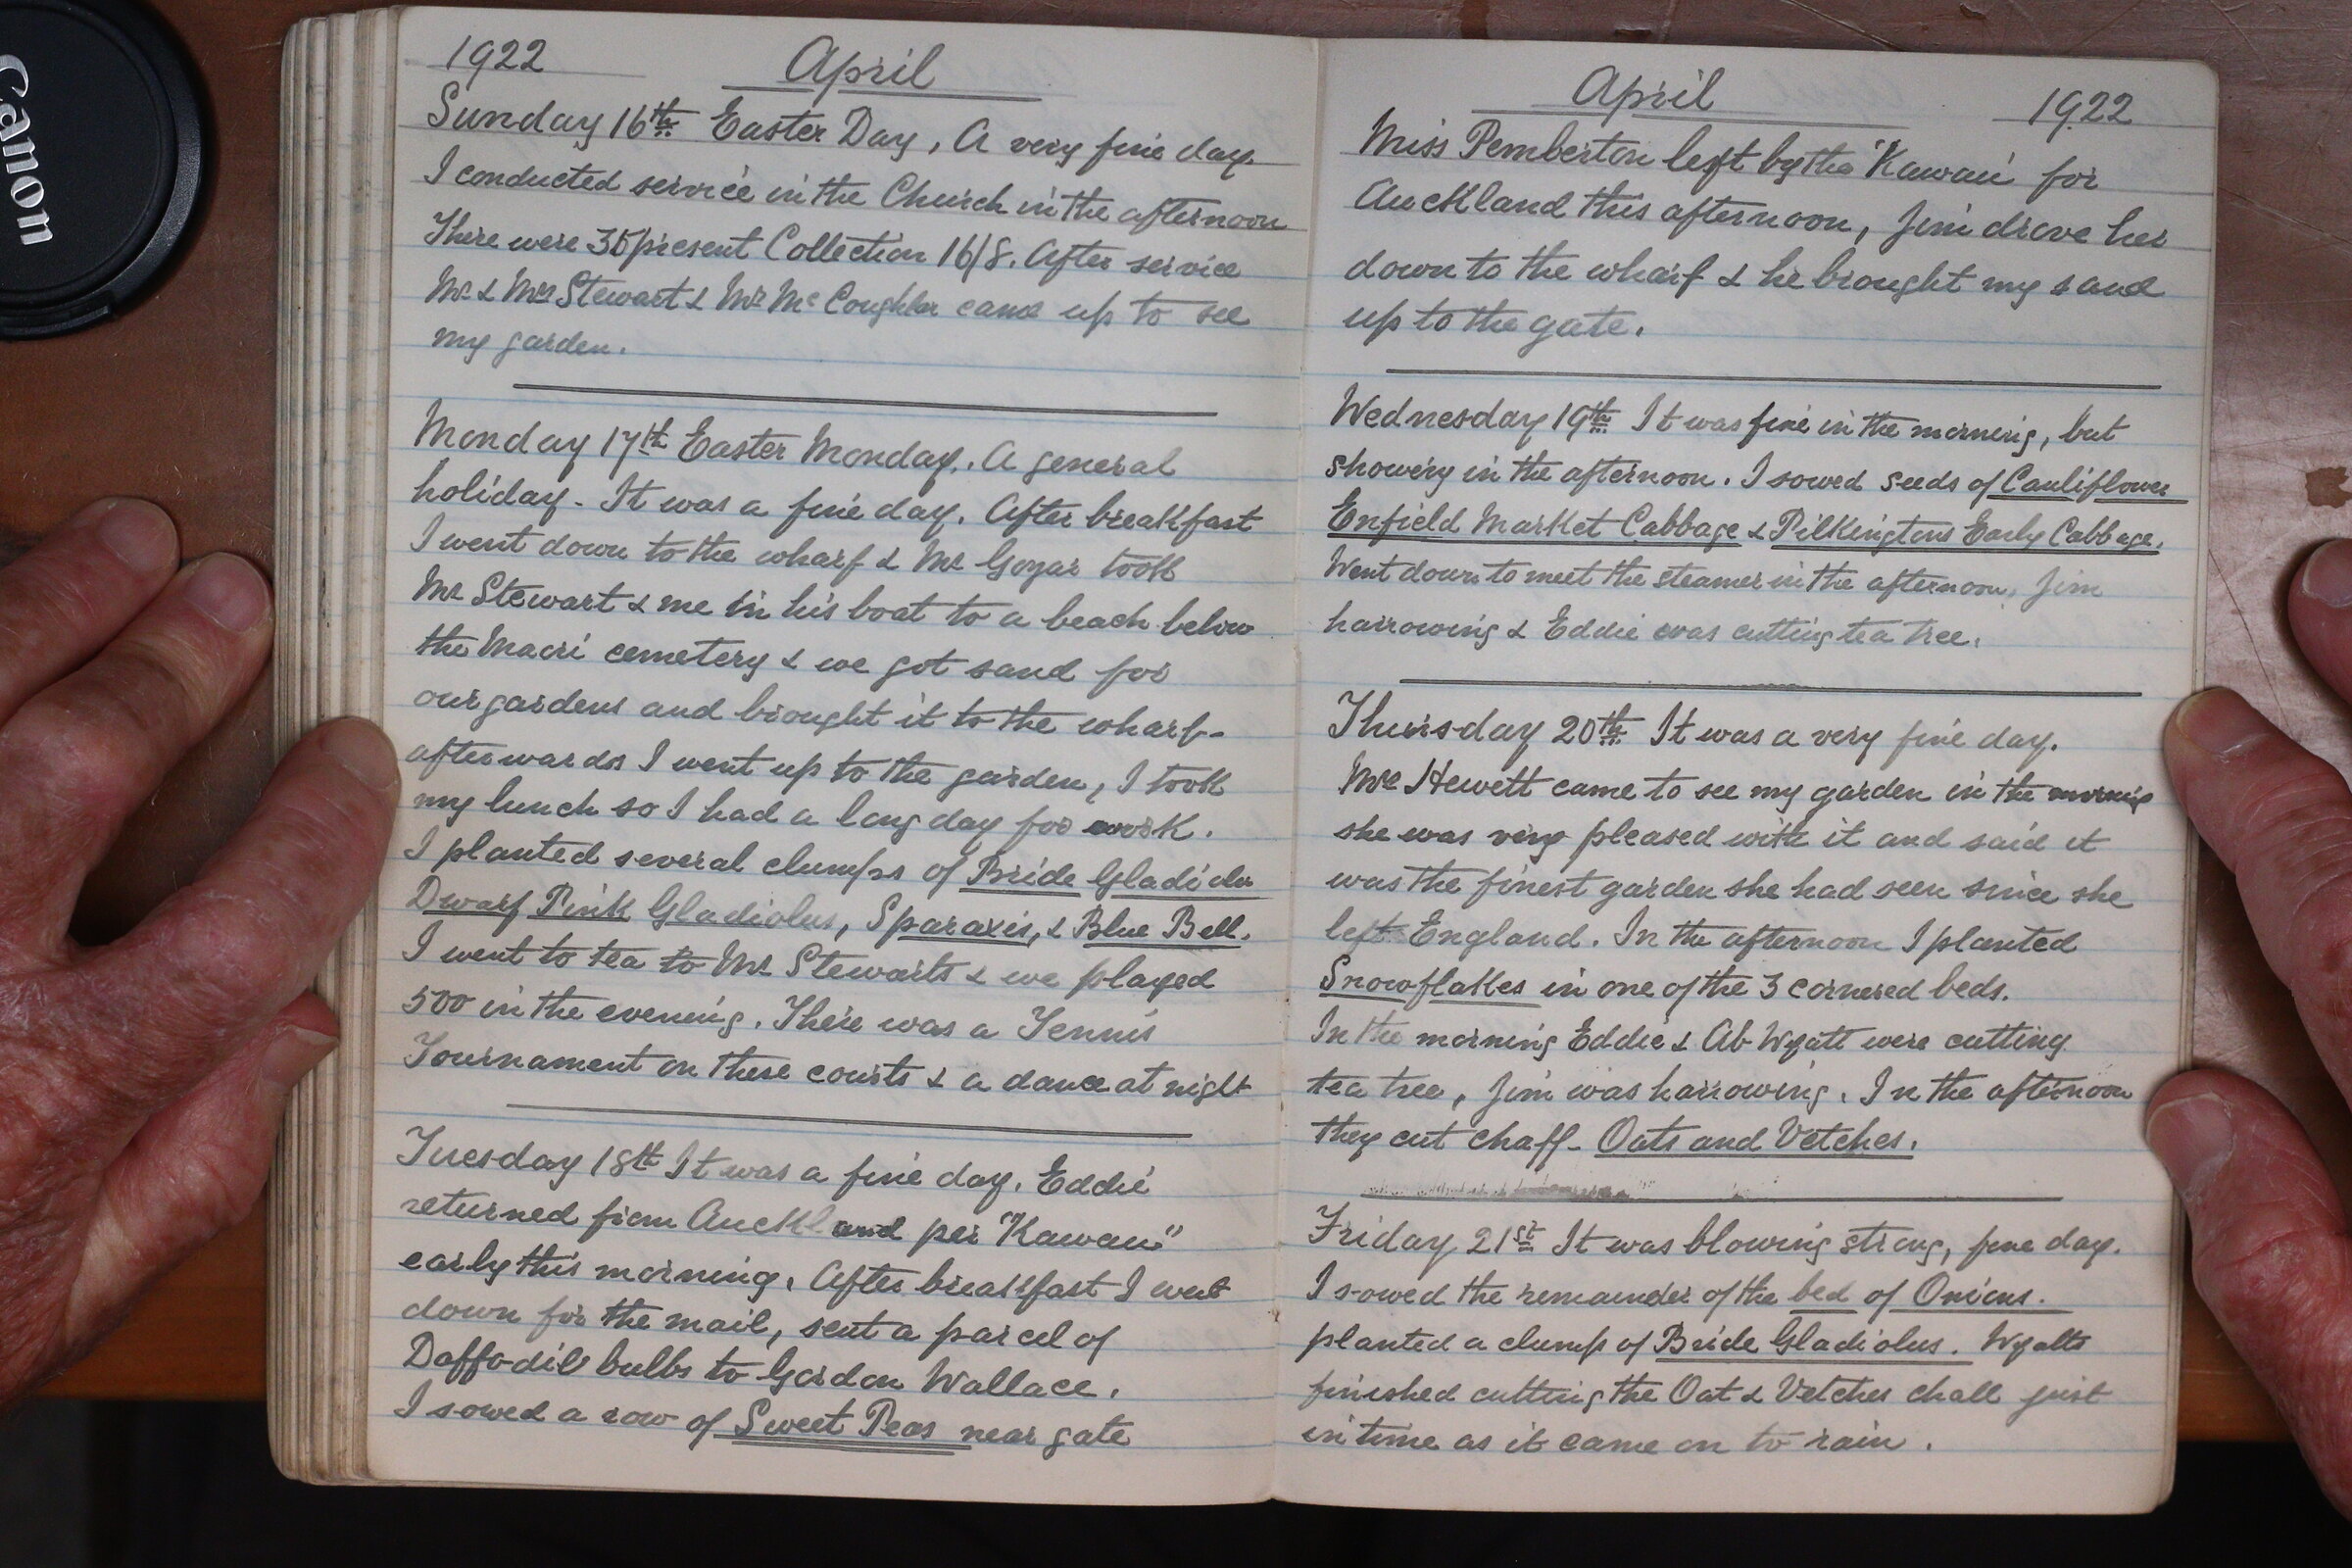 Canon
1922 April
Sunday 16th Easter Day, A very fine day.
I conducted service in the Church in the afternoon
There were 35 present Collection 16/8. After service
Mr & Mrs Stewart & Mr Mc Coughlin came up to see
my garden.
Monday 17th Easter Monday. A general
holiday - It was a fine day. After breakfast
I went down to the wharf & Mr Goyar took
Mr Stewart & me in his boat to a beach below
the Maori cemetery & we got sand for
our gardens and brought it to the wharf -
afterwards I went up to the garden, I took
my lunch so I had a long day for work.
I planted several clumps of Bride Gladiolus
Dwarf Pink Gladiolus, Sparaxis, & Blue Bell.
I went to tea to Mr Stewarts & we played
500 in the evening. There was a Tennis
Tournament on these courts & a dance at night
Tuesday 18th It was a fine day. Eddie
returned from Auckland per "Kawau"
early this morning. After breakfast I went
down for the mail, sent a parcel of
Daffodil bulbs to Gordon Wallace.
I sowed a row of Sweet Peas near gate
April 1922
Miss Pemberton left by the 'Kawau' for
Auckland this afternoon, Jim drove her
down to the wharf & he brought my sand
up to the gate.
Wednesday 19th It was fine in the morning, but
showery in the afternoon. I sowed seeds of Cauliflower
Enfield Market Cabbage & Pilkingtons Early Cabbage.
Went down to meet the steamer in the afternoon, Jim
harrowing & Eddie was cutting tea tree.
Thursday 20th It was a very fine day.
Mrs Hewett came to see my garden in the morning
she was very pleased with it and said it
was the finest garden she had seen since she
left England. In the afternoon I planted
Snowflakes in one of the 3 cornered beds.
In the morning Eddie & Ab Wyatt were cutting
tea tree, Jim was harrowing. In the afternoon
they cut chaff - Oats and Vetches.
Friday 21st It was blowing strong, fine day.
I sowed the remainder of the bed of Onions.
planted a clump of Bride Gladiolus. Wyatts
finished cutting the Oat & Vetches chaff just
in time as it came on to rain.